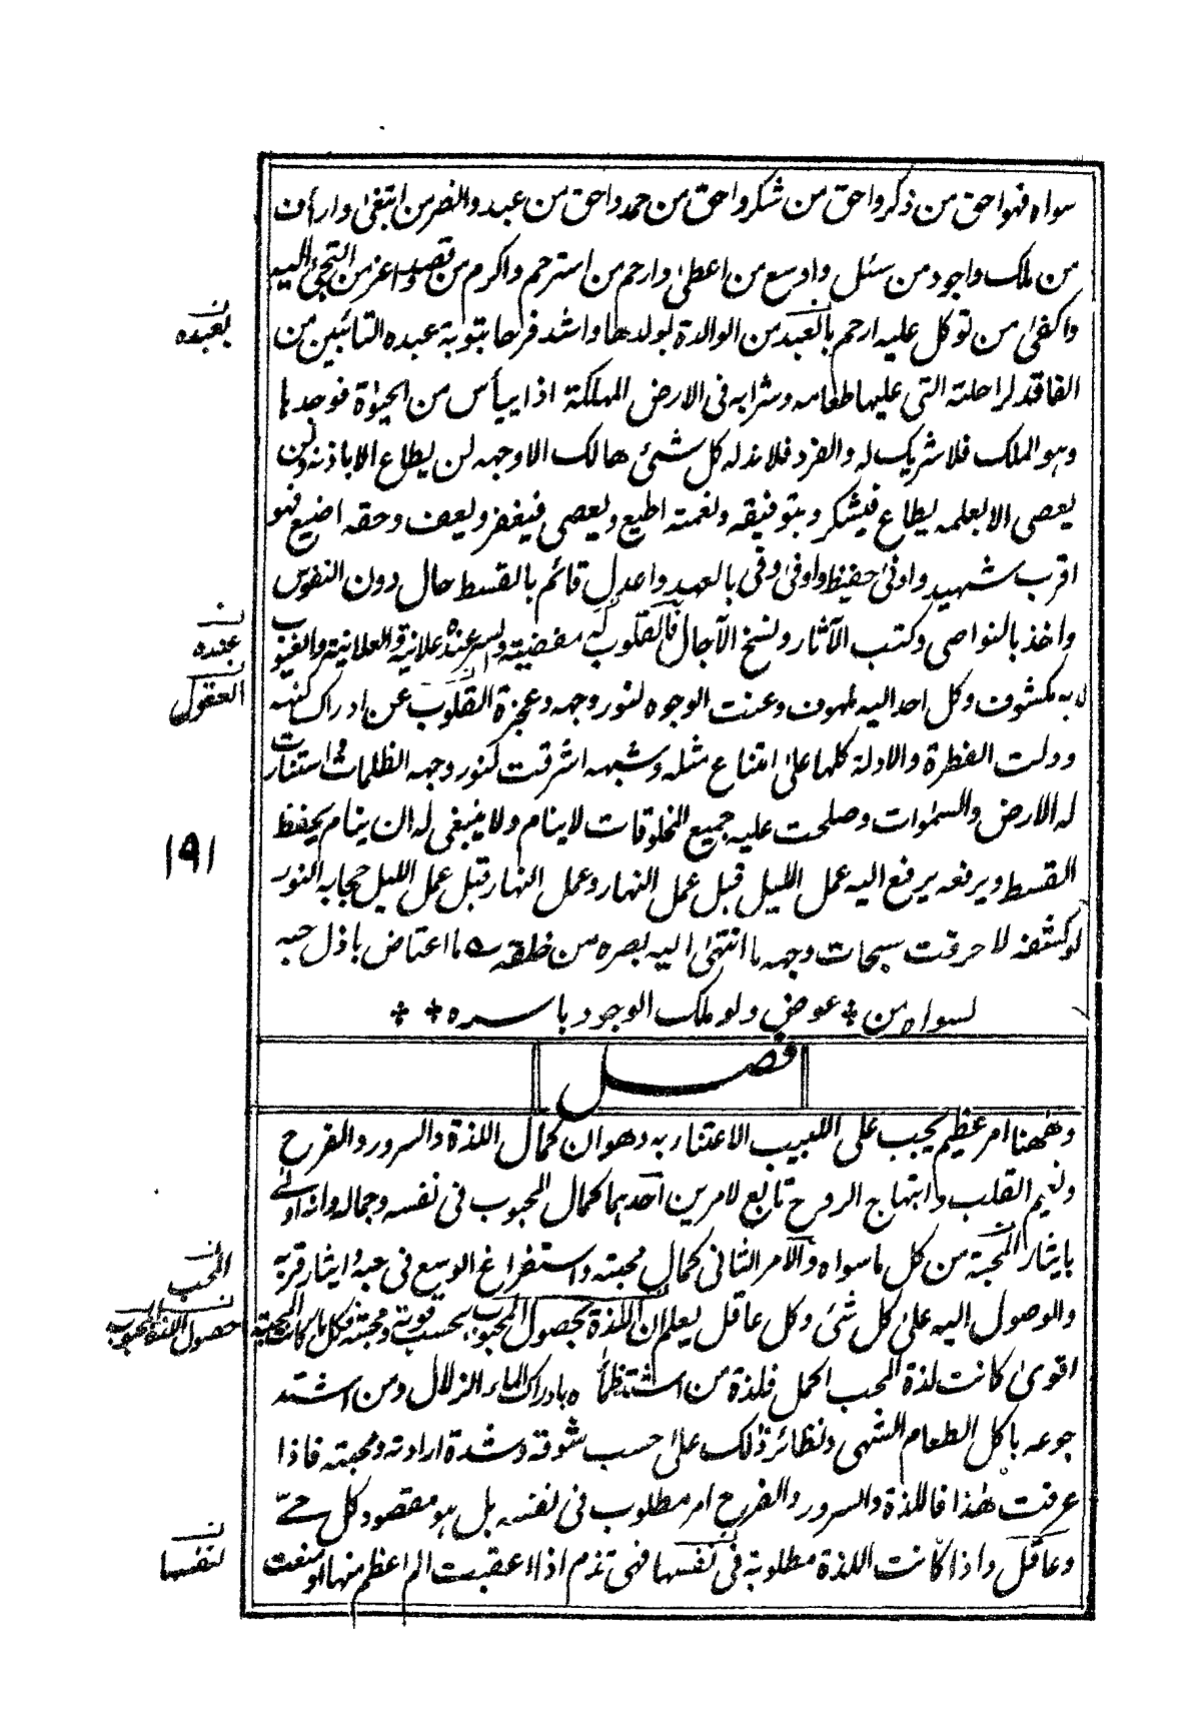 سواه فهو احق من ذكر واحق من شكر واحق من حمد واحق من عبد وانصر من ابتغى وارأف
من ملك واجود من سئل واوسع من اعطى وارحم من استرحم واكرم من قصد واعز من التجئ اليه
واكفى من توكل عليه ارحم بالعبد من الوالدة لولدها واشد فرحا بتوبة عبده التائبين من
بعبده
الفاقد لراحلته التى عليها طعامه وشرابه فى الارض المهلكة اذا ييأس من الحيوٰة فوجدها
وهو الملك فلا شريك له والفرد فلا ند له كل شئ هالك الا وجهه لن يطاع الا باذنه ولن
يعصى الا بعلمه يطاع فيشكر وبتوفيقه ونعمته اطيع ويعصى فيغفر ويعف وحقه اضيع فهو
اقرب شهيد واوفى حفيظ واوفى وفى بالعهد واعدل قائم بالقسط حال دون النفوس
واخذ بالنواصى وكتب الآثار ونسخ الآجال فالقلوب له مفضية والسر عنده علانية والعلانية والغيوب
عنده
لديه مكشوف وكل احد اليه ملهوف وعنت الوجوه لنور وجهه وعجزة القلوب عن ادراك كنهه
العقول
ودلت الفطرة والادلة كلها على امتناع مثله وشبهه اشرقت لنور وجهه الظلمات واستنارت
له الارض والسمٰوات وصلحت عليه جميع المخلوقات لا ينام ولا ينبغى له ان ينام يخفظ
١٩١
القسط ويرفعه يرفع اليه عمل الليل قبل عمل النهار وعمل النهار قبل عمل الليل حجابه النور
لو كشفه لاحرقت سبحات وجهه ما انتهى اليه بصره من خلقه ه ما اعتاض باذل حبه
لسواه من * عوض ولو ملك الوجود باسره * *
فصل
وههنا امر عظيم يجب على اللبيب الاعتناء به وهو ان كمال اللذة والسرور والفرح
ونعيم القلب وابتهاج الروح تابع لامرين احدهما كمال المحبوب فى نفسه وجماله وانه اولى
بايثار المحبة من كل ما سواه والامر الثانى كمال محبته واستفراغ الوسع فى حبه وايثار قربه
الحب
والوصول اليه على كل شئ وكل عاقل يعلم ان اللذة بحصول المحبوب بحسب قوة ومحبته فكل ما كانت المحبة
حصول اللذة المحبوب
اقوى كانت لذة المحب اكمل فلذة من اشتد ظمأه بادراك الماء الزلال ومن اشتد
جوعه باكل الطعام الشهى ونظائر ذلك على حسب شوقه وشدة ارادته ومحبته فاذا
عرفت هٰذا فاللذة والسرور والفرح امر مطلوب فى نفسه بل هو مقصود كل حىّ
وعاقل واذا كانت اللذة مطلوبة فى نفسها فهى تذم اذا اعقبت الم اعظم منها او منعت
لنفسها